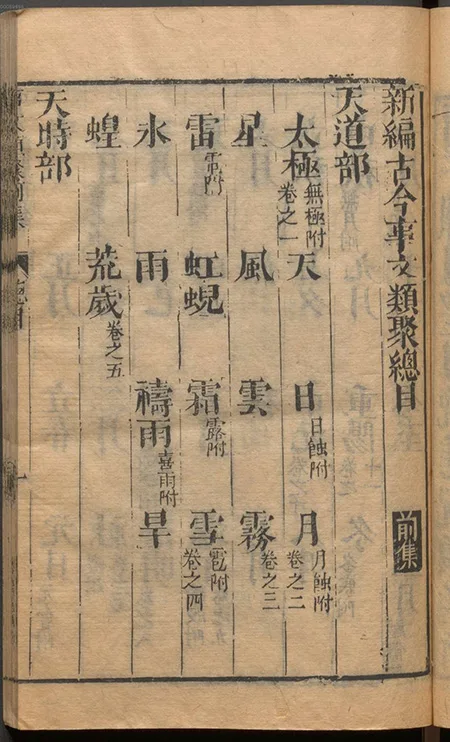 新編古今事文類聚總目 前集
天道部
太極 無極附 卷之一 天 日 日蝕附 月 月蝕附 卷之二
星 風 雲 霧 卷之三
雷 電附 虹蜺 霜 露附 雪 雹附 卷之四
氷 雨 禱雨 喜雨附 旱
蝗 荒歲 卷之五
天時部